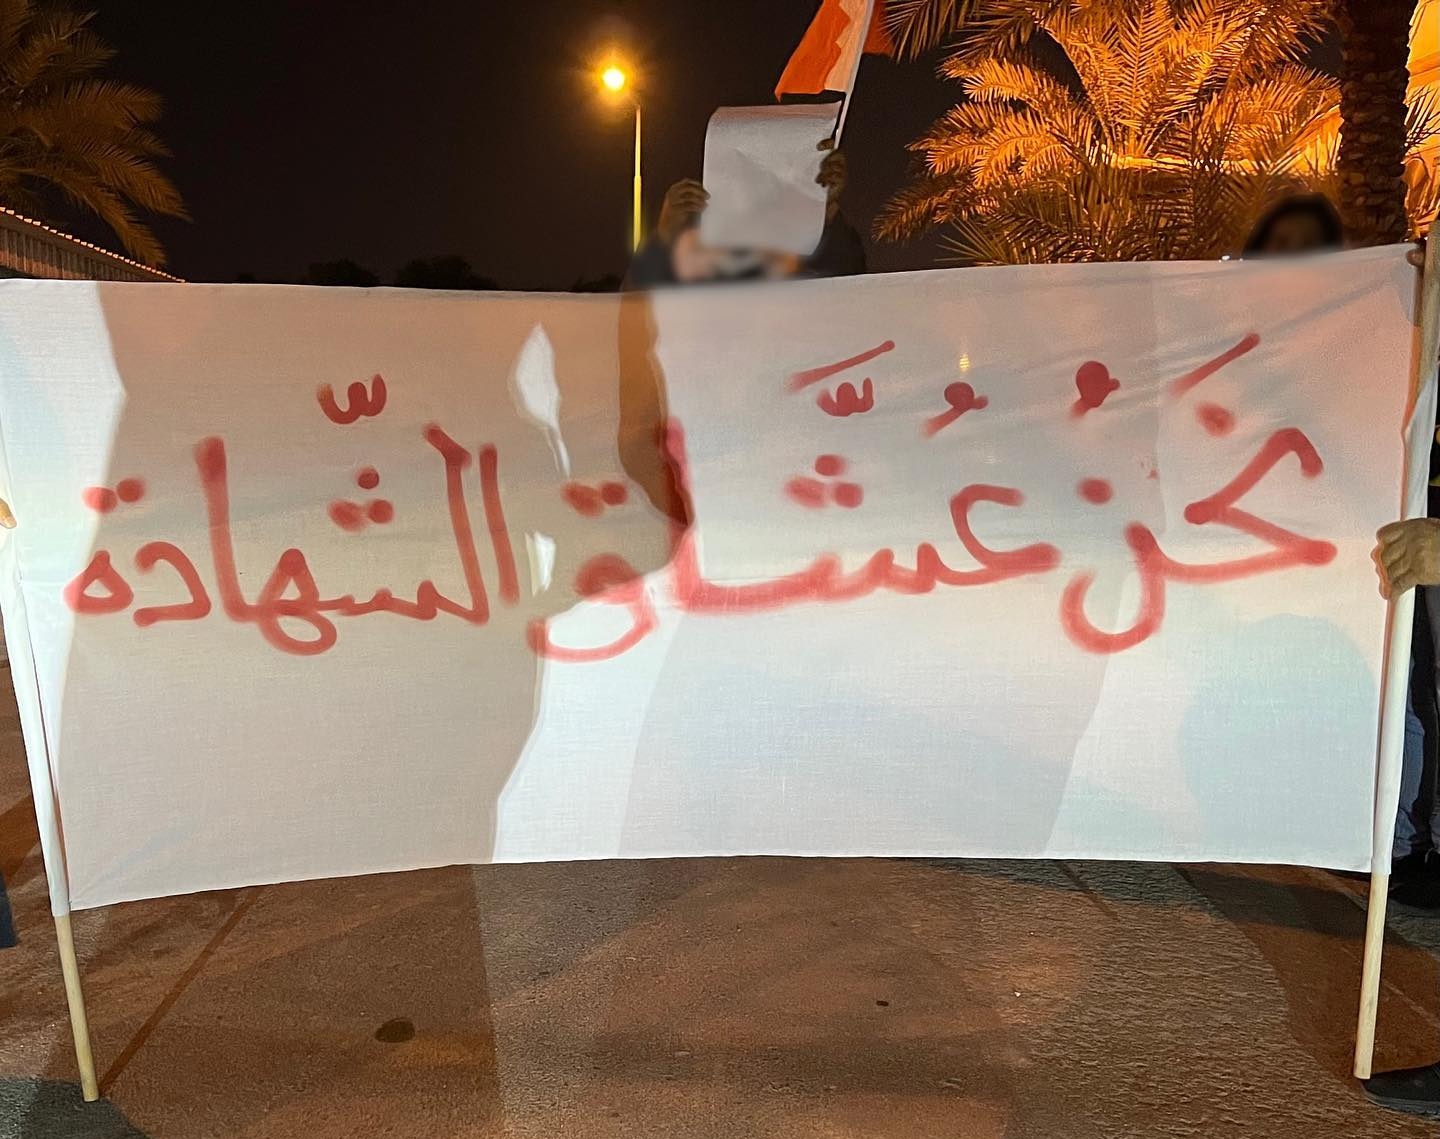 نَحنُ عُشَّاق الشّهادة